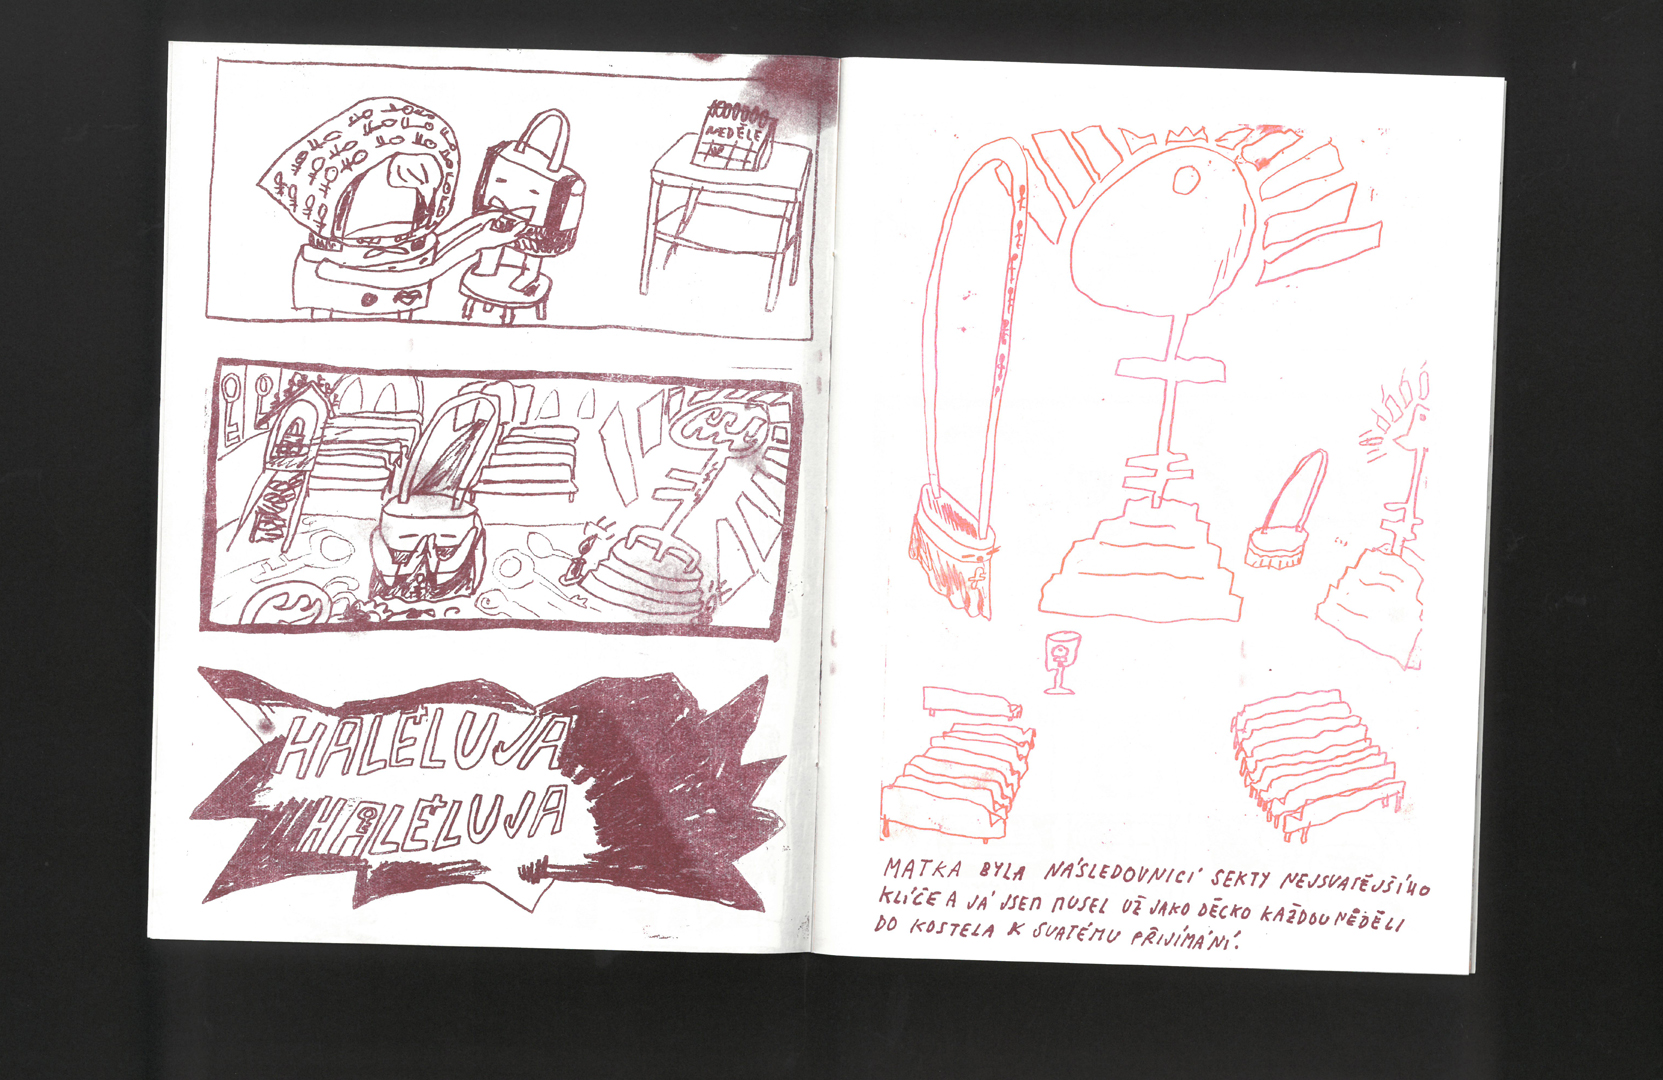 NEDĚLE
HALELUJA
HALELUJA
MATKA BYLA NÁSLEDOVNICÍ SEKTY NEJSVATĚJŠÍHO
KLÍČE A JÁ JSEM MUSEL UŽ JAKO DĚCKO KAŽDOU NĚDĚLI
DO KOSTELA K SVATÉMU PŘIJÍMÁNÍ.